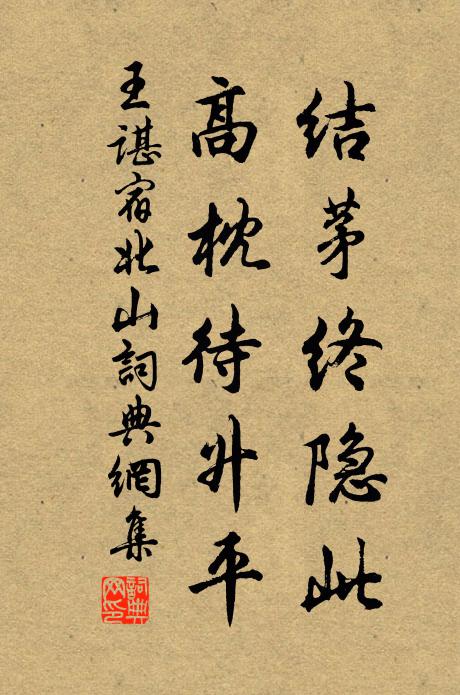 结茅终隐此
高枕待升平
王谌宿北山詞典網集
詞典网印